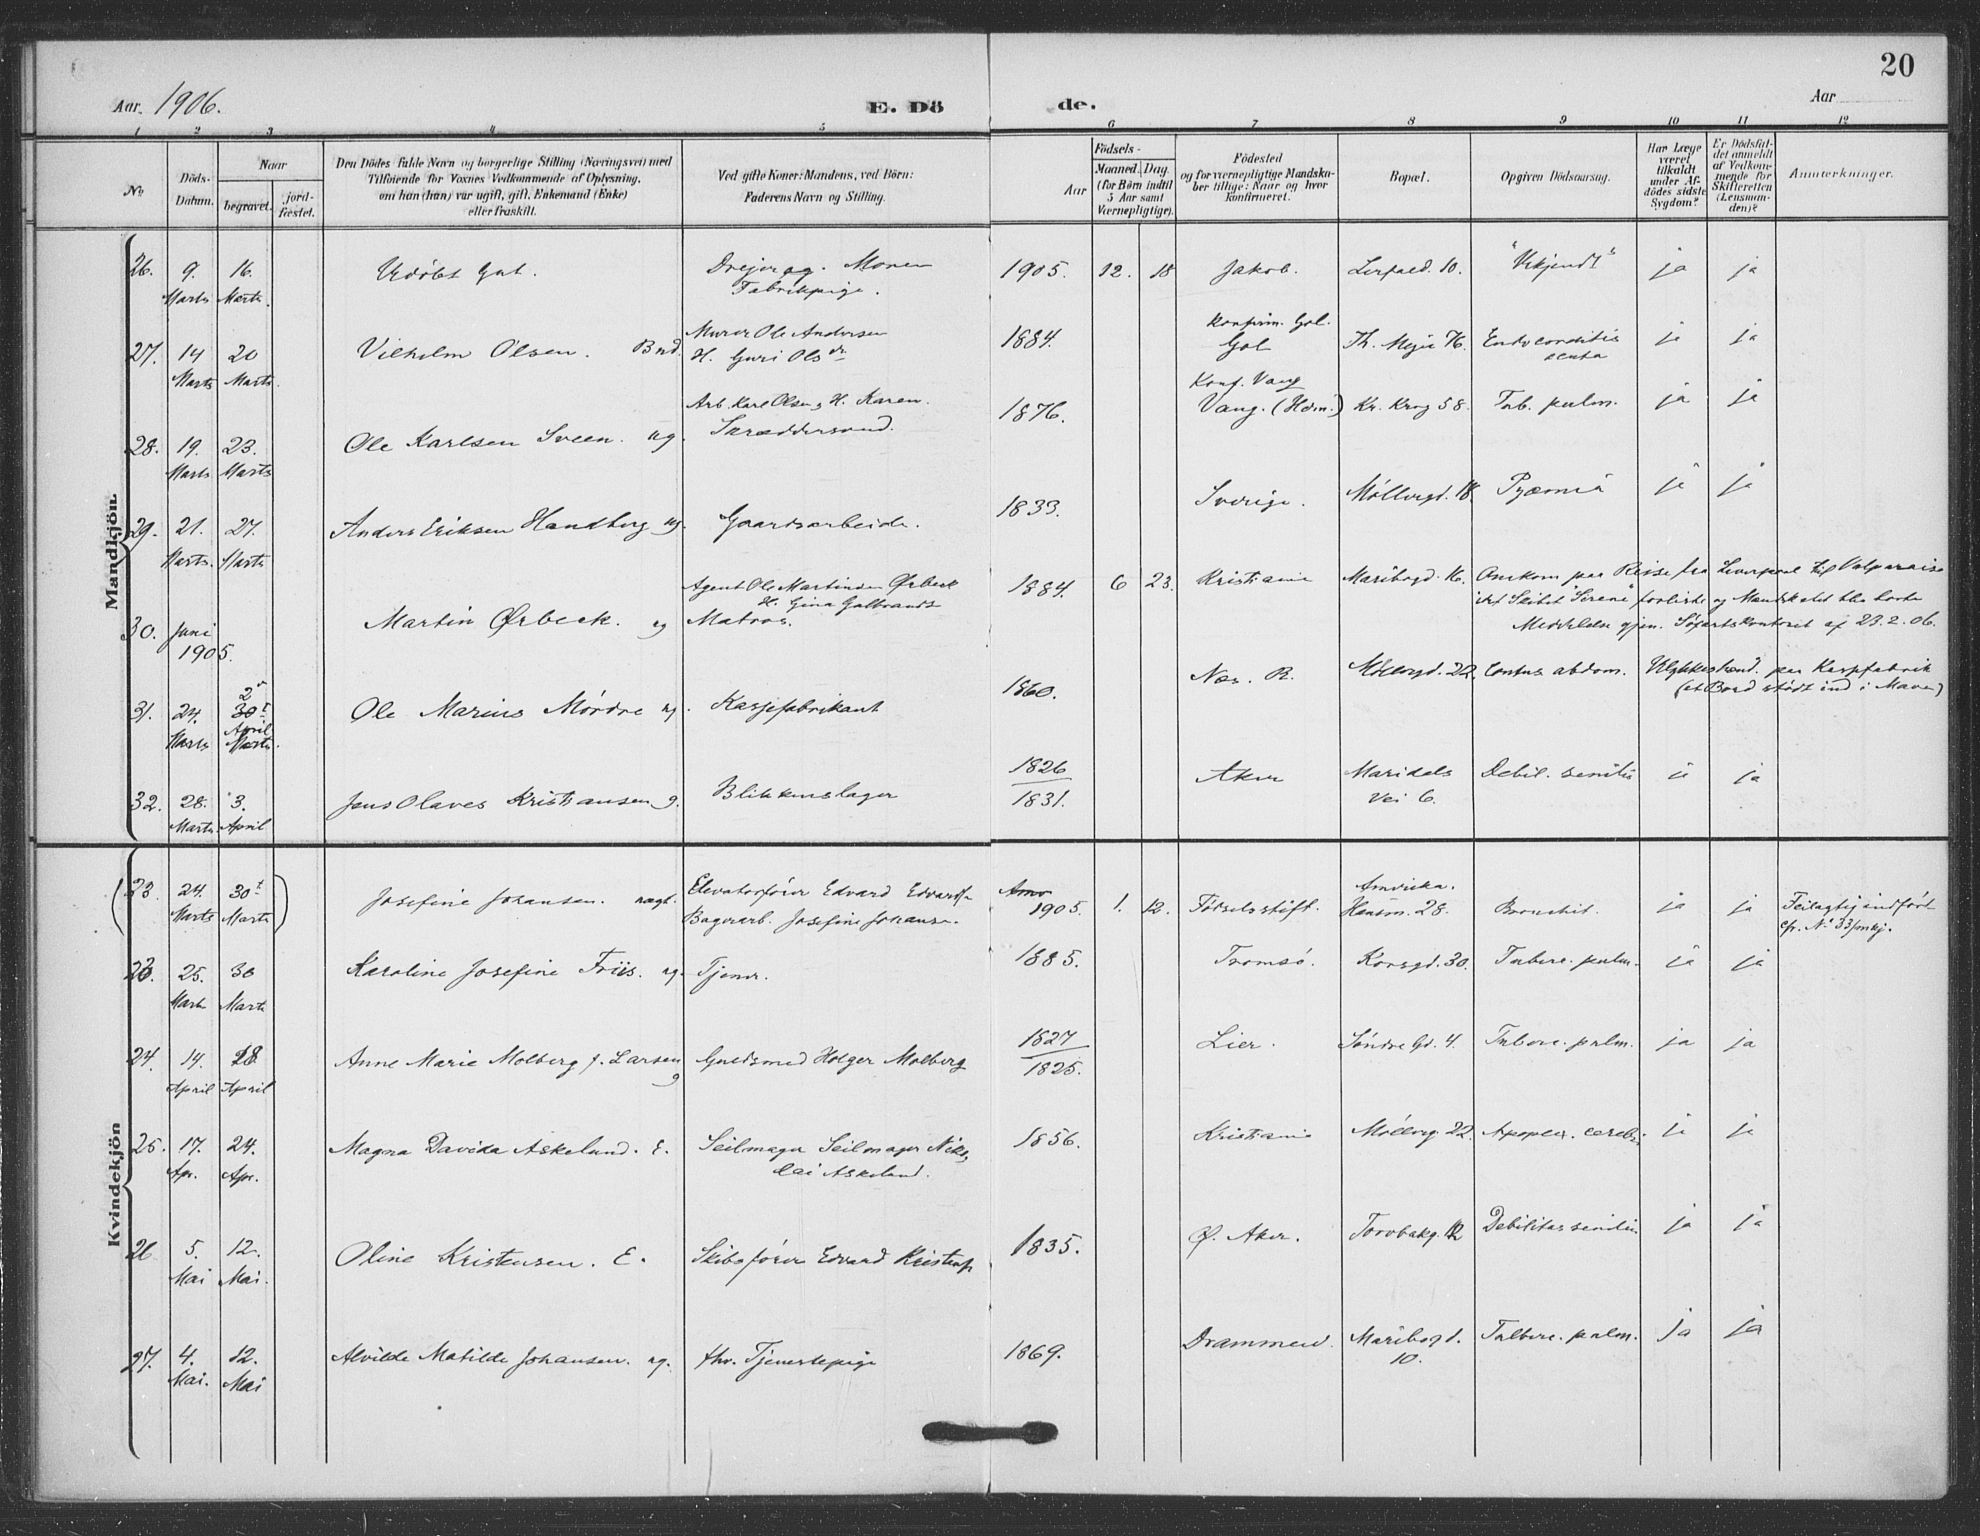 20
Aar 1906. E. Dö de. Aar
1 2 3 4 5 6 7 8 9 10 11 12
No
Döds-Datum.
Naar
begravet.
jord-fæstet.
Den Dödes fulde Navn og borgerlige Stilling (Næringsvei) med
Tilföiende for Voxnes Vedkommende af Oplysning,
om han (hun) var ugift, gift, Enkemand (Enke)
eller fraskilt.
Ved gifte Koner: Mandens, ved Börn:
Faderens Navn og Stilling.
Födsels-
Aar
Maaned. Dag.
(for Börn indtil
5 Aar samt
Værnepligtige).
Födested
og for værnepligtige Mandska-
ber tillige: Naar og hvor
konfirmeret.
Bopæl.
Opgiven Dödsaarsag.
Har Læge
været
tilkaldt
under Af-
dödes sidste
Sygdom?
Er Dödsfal-
det anmeldt
af Vedkom-
mende for
Skifteretten
(Lensman-
den)?
Anmærkninger.
Mandkjön.
26. 9. Marts 16. Marts. Udöbt Gut. Drejer og. Moren Fabrikpige. 1905. 12. 18 Jakob. Lerfald. 10. "Ukjendt" ja ja
27. 14 Marts 20 Marts. Vilhelm Olsen. Bud. Murer Ole Andersen H. Guri Olsdr 1884. Konfirm. Gol. Gol Th. Meyer 76. Endocarditis acuta ja ja
28. 19. Marts 23. Marts Ole Karlsen Sveen. ug. Arb. Karl Olsen, H. Karen. Skræddersvend. 1876. Konf. Vang Vang. (Hedm.) Kr. Krog 58. Tub. pulm. ja ja
29. 21. Marts. 27. Marts Anders Eriksen Handberg ug. Gaardsarbeider. 1833. Sverige. Möllergd. 18. Pyæmia ja ja
30. Juni 1905. Martin Ørbeck. ug Agent Ole Martinsen Ørbeck H. Gina Gulbrands Matros. 1884. 6 23. Kristiania Maribogd. 16. Omkom paa Reise fra Liverpool til Valparaiso
idet Skibet Sirene forliste og Mandskabet blev borte
Meddelelse gjen. Söfartskontoret af 23.2.06.
31. 24. Marts 2 30t April Marts. Ole Marius Mördre ug. Kassefabrikant 1860. Næs. R. Möllergd. 22. Contus. abdom. Ulykkeshænd. paa Kassefabrik
(et Bord stödt ind i Maven)
32. 28. Marts 3. April Jens Olaves Kristiansen g. Blikkenslager 1826 1831. Aker Maridals Vei 6. Debil. senilis ja ja
Kvindekjön
(23. 24. Marts 30t Marts) Josefine Johansen. uægt. Elevatorförer Edvard Edvardsen Bagerarb. Josefine Johansen. 1905. 1. 12. Födselsstift. Amerika. Hausm. 28. Bronchit. ja ja Feilagtig indfört cfr. No 33 mkj.
23. 25. Marts 30 Marts Karoline Josefine Friis. ug. Tjener. 1885. Tromsö. Korsgd. 30. Tuberc. pulm. ja ja
24. 14. April 28 April Anne Marie Molberg f. Larsen g Guldsmed Holger Molberg 1827 1825. Lier. Söndre Gd. 4. Tuberc. pulm. ja ja
25. 17. Apr. 24. Apr. Magna Davida Askelund. E. Seilmager Seilmager Nikolai Askelund. 1856. Kristiania Möllerg. 22. Apoplex. cerebri ja ja
26 5. Mai 12. Mai. Oline Kristensen. E. Skibsförer Edvard Kristensen 1835. Ø. Aker. Torvbakg. 12 Debilitas senilis ja ja
27. 4. Mai. 12. Mai Alvilde Matilde Johansen. ug. fhv. Tjenestepige 1869. Drammen. Maribogd. 10. Tuberc. pulm. ja ja